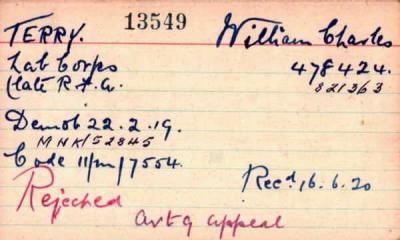 TERRY. 13549 William Charles
Lab Corps 478424.
(late R.F.A. 821363
Demob 22.2.19.
MNK/52845
Code 11/m/7554.
Recd 16.6.20
Rejected
Art 9 appeal